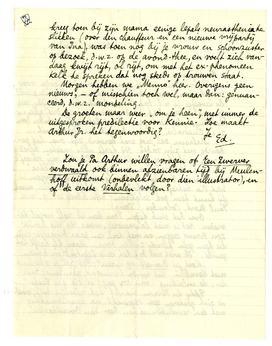 kreeg toen bij zijn mama einige lepels neurasthenische
slikken (over den chauffeur en een nieuwe vrijpartij
van Ina), was toen nog bij je vrouw en schoonzuster
op bezoek, d.w.z. op de avond-thee, en voelt zich van-
daag kwijt rijt, of rijt, om met het ex-phenomeen
Kelk te spreken dat nog steeds op trouwen staat.
Morgen hebben we Menno hier. Overigens geen
nieuws, – of misschien toch wel, maar dan: genuan-
ceerd, d.w.z. mondeling.
De groeten maar weer "om je heen", met immer de
uitgesproken predilectie voor Kennie. Hoe maakt
Arthur Jr. het tegenwoordig?
Je
Ed.
Zou je Pa Arthur willen vragen of Een Zwerver
verdwaald ook binnen afzienbaren tijd bij Meulen-
hoff uitkomt (onbevlekt door den illustrator), en
of de eerste Verhalen volgen?